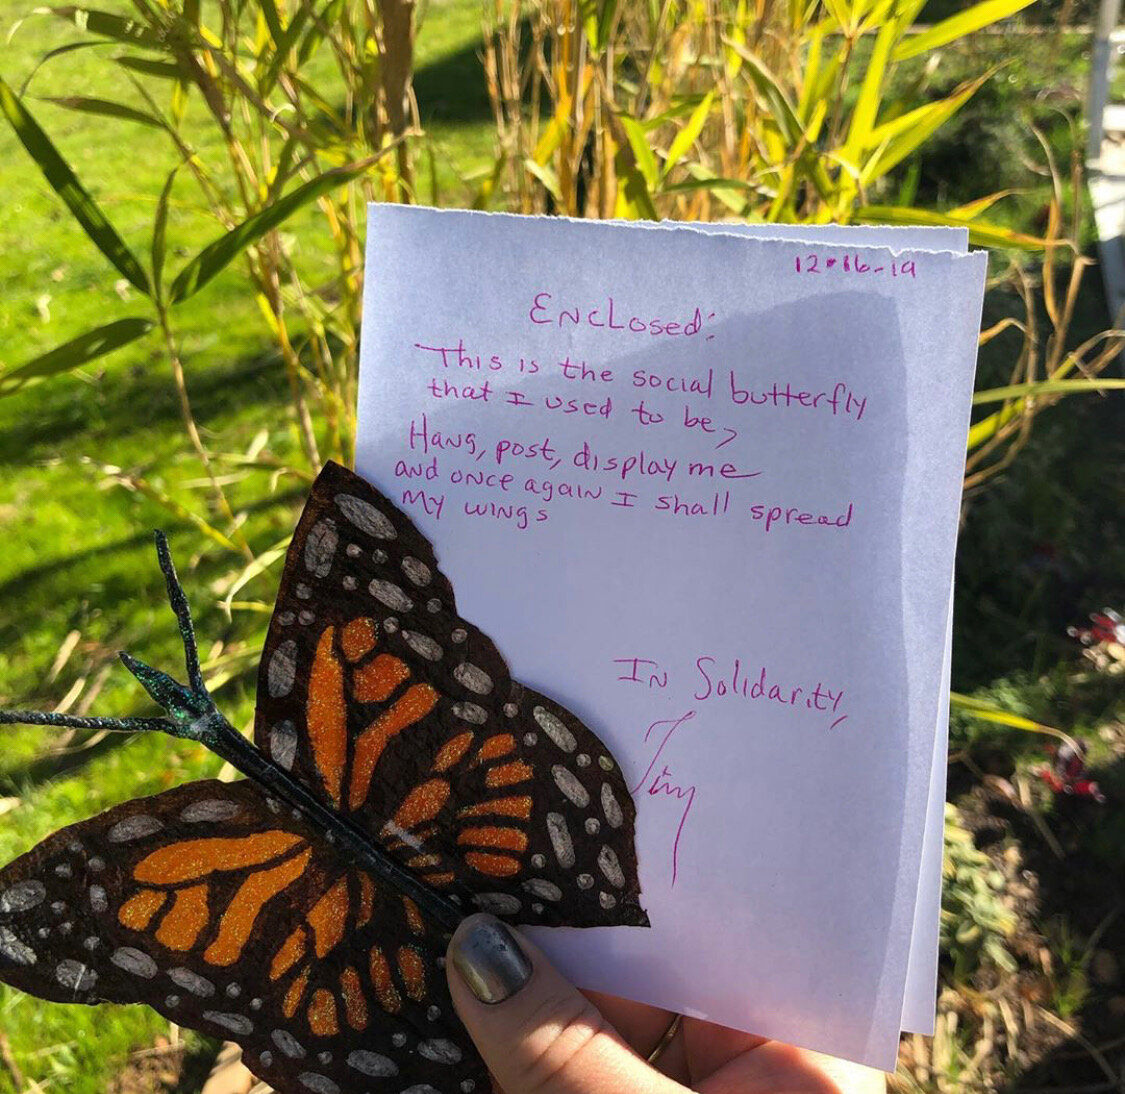 12-16-19
Enclosed:
This is the social butterfly
that I used to be,
Hang, post, display me
and once again I shall spread
my wings
In Solidarity,